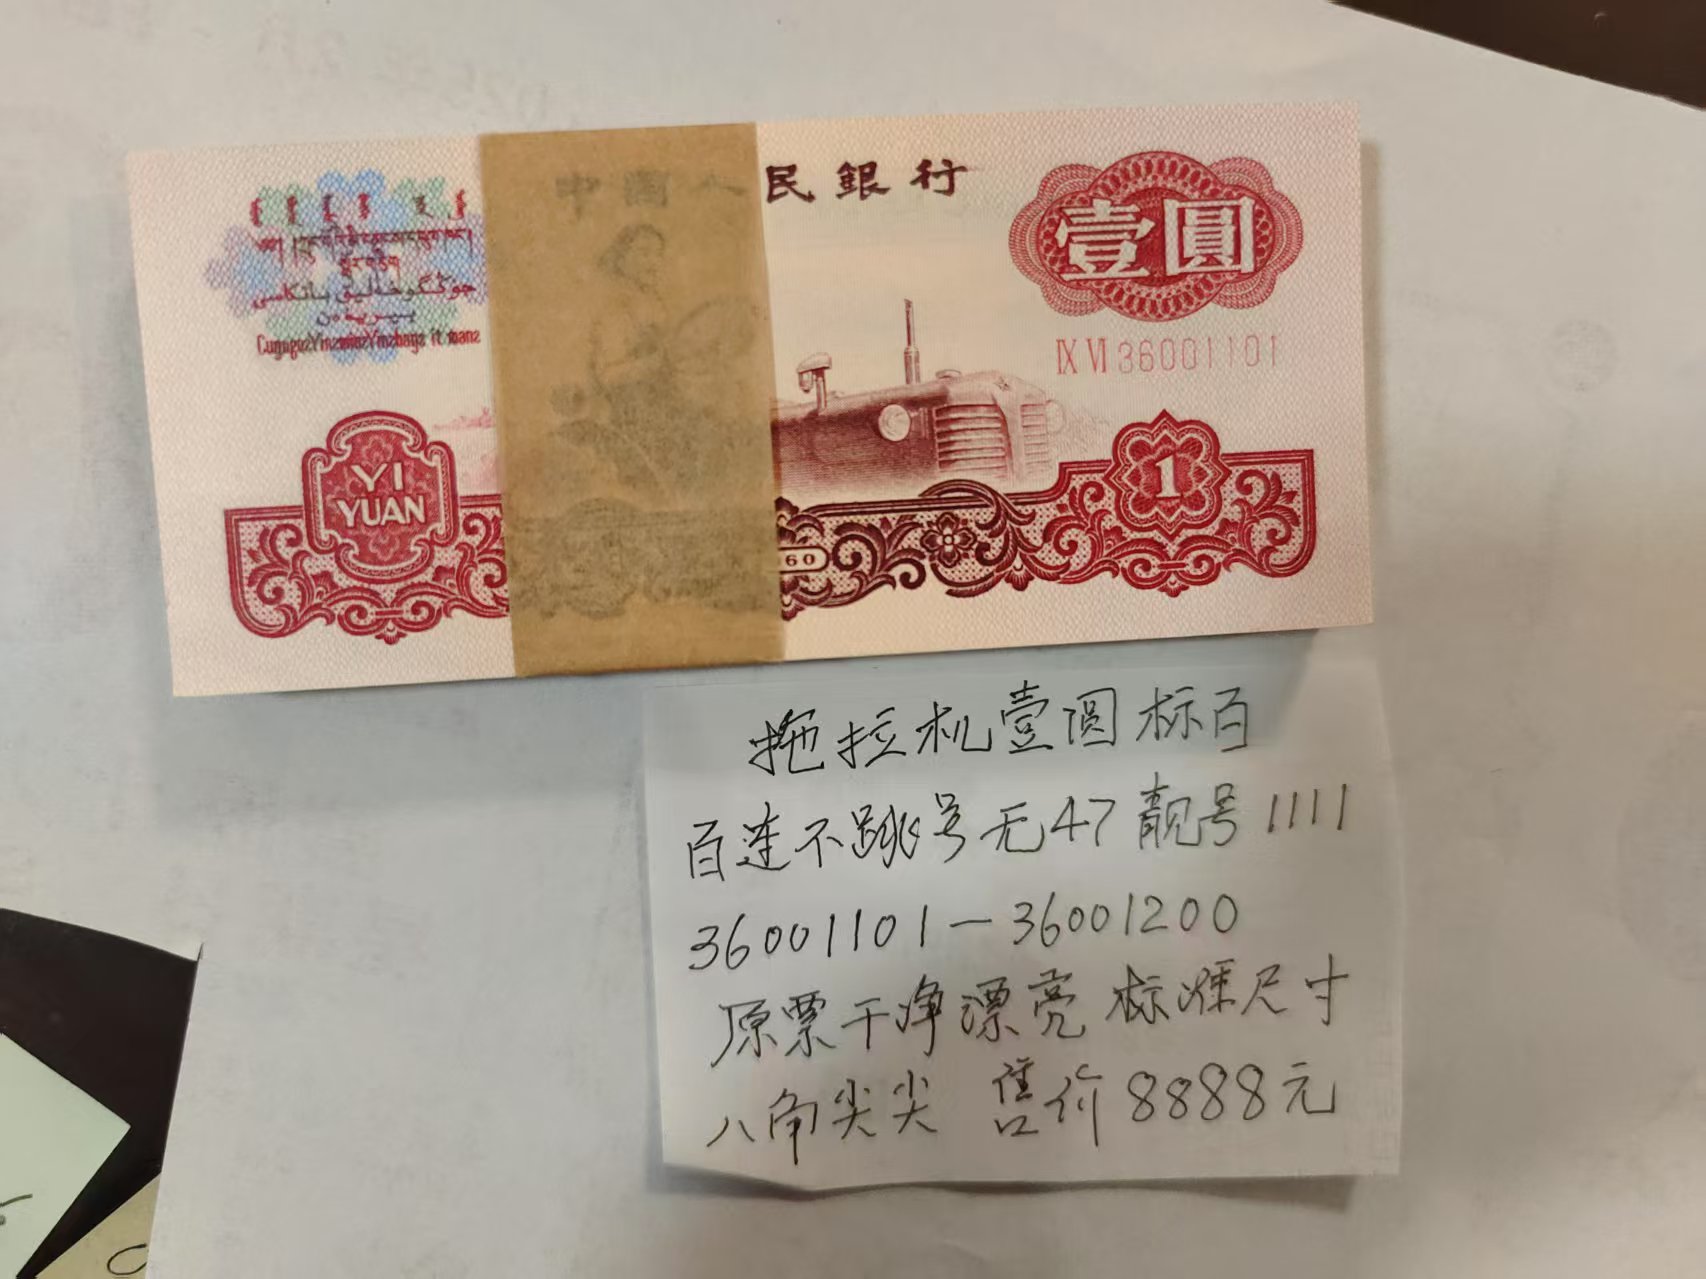 中国人民銀行
壹圓
IX VI 36001101
YI
YUAN
1
60
拖拉机壹圆标百
百连不跳号无47靓号1111
36001101—36001200
原票干净漂亮标准尺寸
八角尖尖 售价8888元